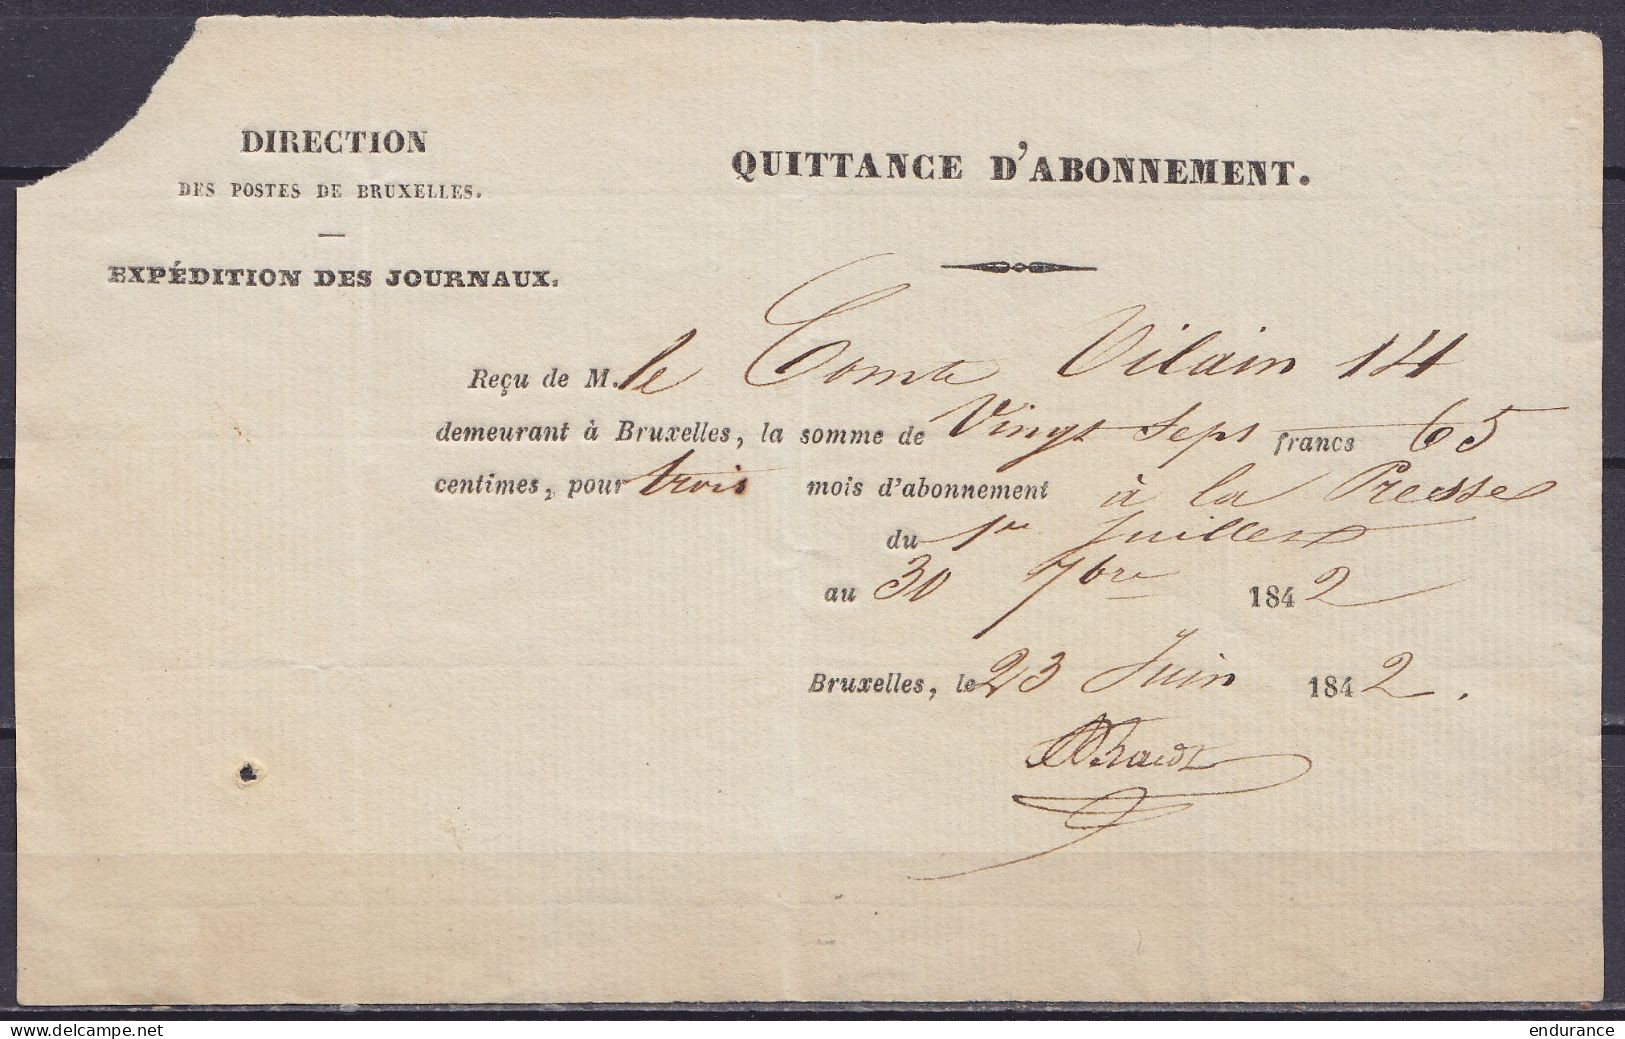 DIRECTION
DES POSTES DE BRUXELLES.
EXPÉDITION DES JOURNAUX.
QUITTANCE D'ABONNEMENT.
Reçu de M. le Comte Vilain 14
demeurant à Bruxelles, la somme de Vingt Sept francs 65
centimes, pour trois mois d'abonnement à la Presse
du 1er Juillet
au 30 7bre 1842
Bruxelles, le 23 Juin 1842.
delcampe.net
endurance